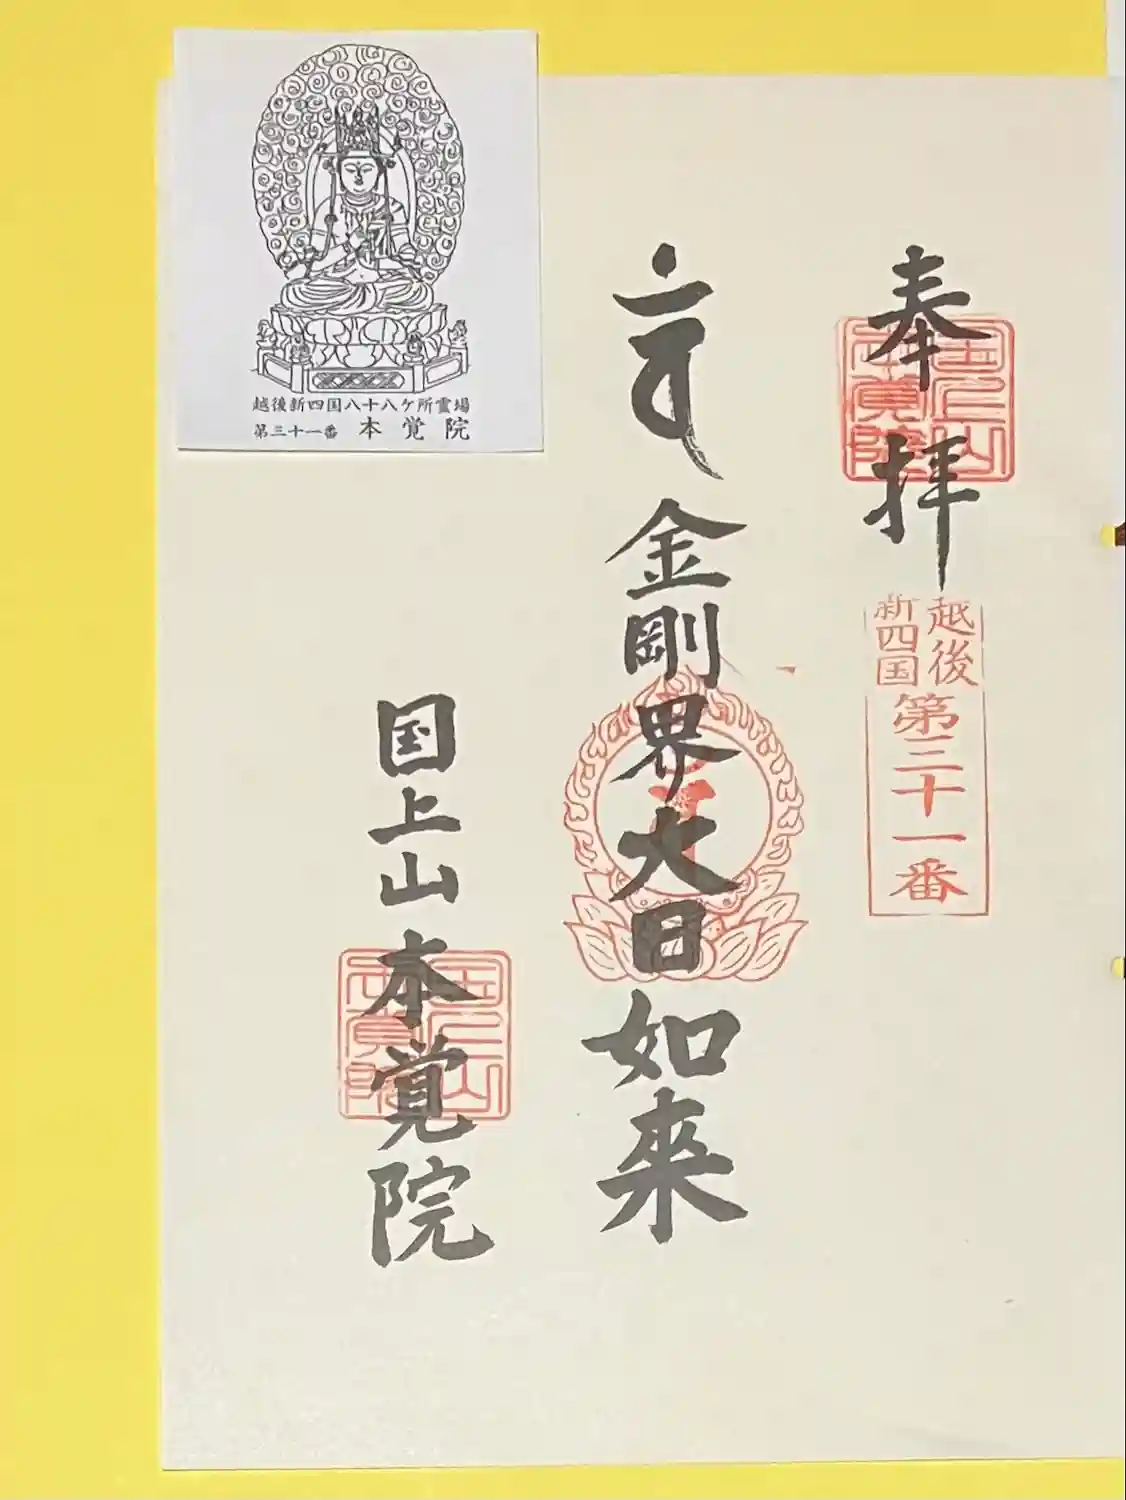 越後新四国八十八ケ所霊場
第三十一番 本覚院
奉拝
越後
新四国
第三十一番
金剛界大日如来
国上山本覚院
国上山
本覚院
国上山
本覚院